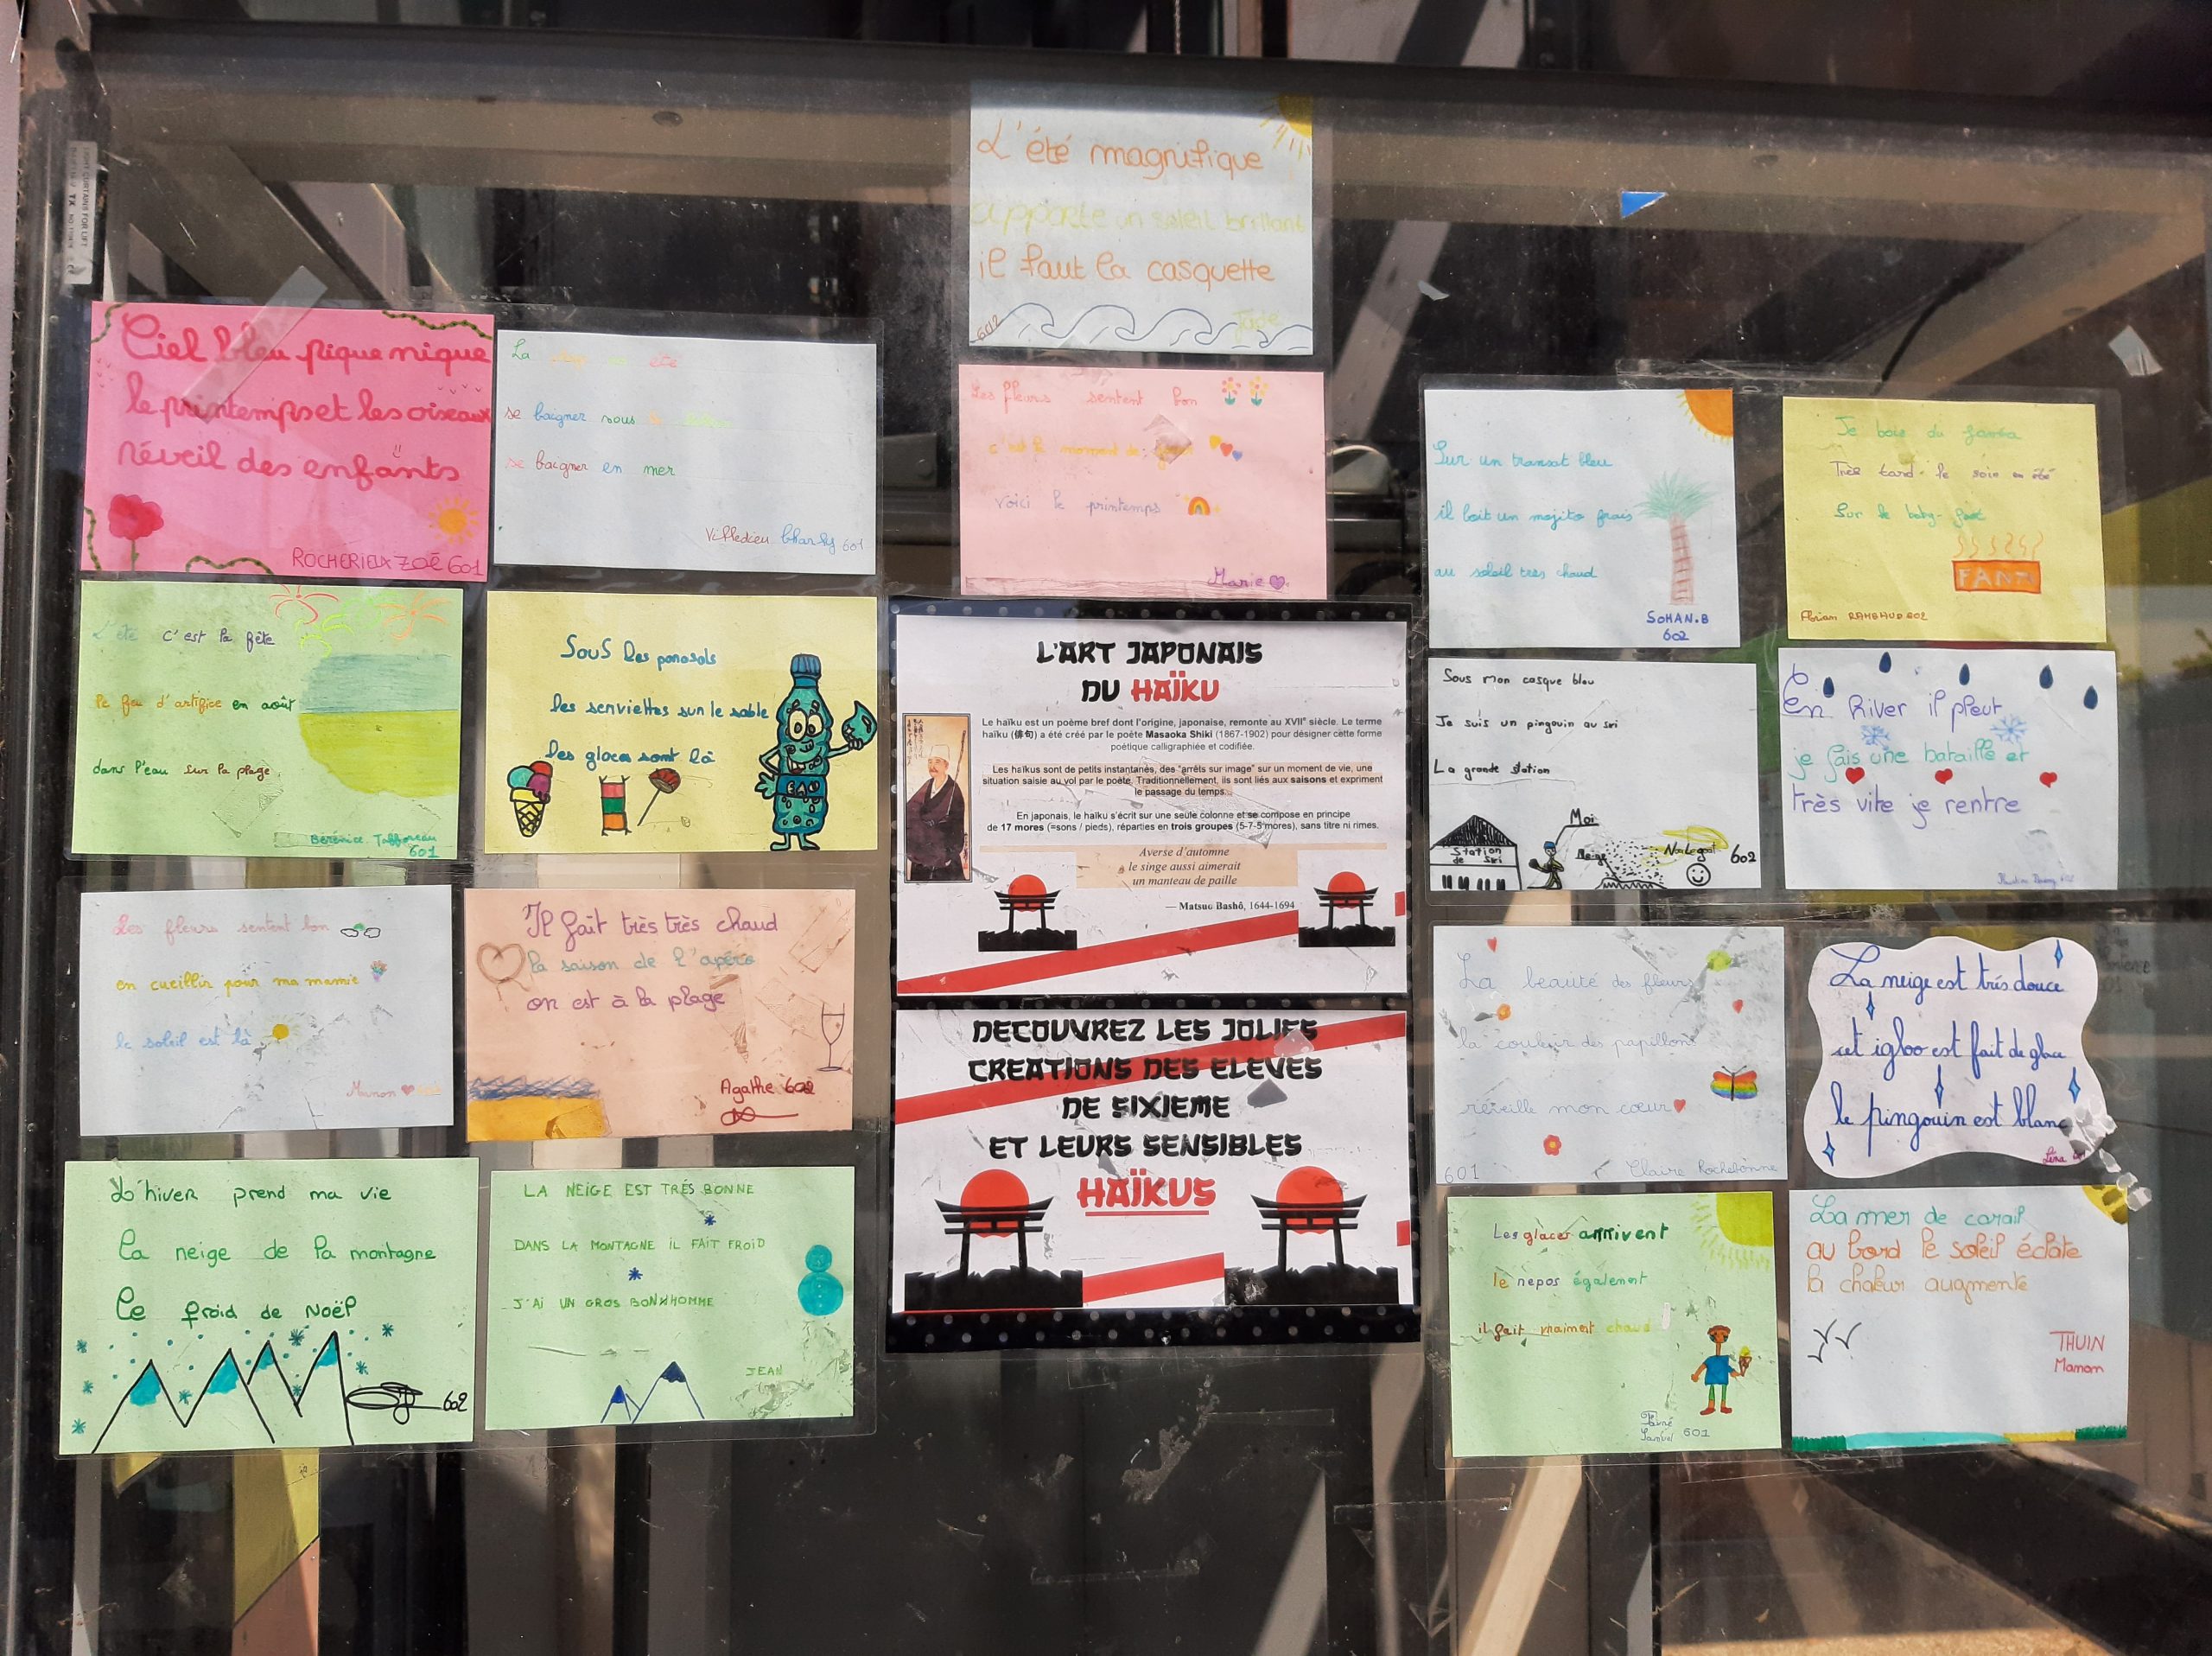 L'été magnifique
apporte un soleil brillant
il faut la casquette
602
Jade
Ciel bleu pique nique
le printemps et les oiseaux
réveil des enfants
ROCHERIEUX ZOÉ 601
La
été
se baigner sous
se baigner en mer
Villedieu Charly 601
Les fleurs sentent bon
c'est le moment de
voici le printemps
Marie
Sur un transat bleu
il boit un mojito frais
au soleil très chaud
SOHAN.B
602
Je bois du
Très tard le soir en été
Sur le
FANTA
Florian RAMBAUD 602
L'été c'est la fête
le feu d'artifice en août
dans l'eau sur la plage
Bérénice
601
Sous les parasols
les serviettes sur le sable
les glaces sont là
EAU
L'ART JAPONAIS
DU HAÏKU
Le haïku est un poème bref dont l'origine, japonaise, remonte au XVIIe siècle. Le terme
haïku (俳句) a été créé par le poète Masaoka Shiki (1867-1902) pour désigner cette forme
poétique calligraphiée et codifiée.
Les haïkus sont de petits instantanés, des "arrêts sur image" sur un moment de vie, une
situation saisie au vol par le poète. Traditionnellement, ils sont liés aux saisons et expriment
le passage du temps.
En japonais, le haïku s'écrit sur une seule colonne et se compose en principe
de 17 mores (=sons / pieds), réparties en trois groupes (5-7-5 mores), sans titre ni rimes.
Averse d'automne
le singe aussi aimerait
un manteau de paille
— Matsuo Bashô, 1644-1694
Sous mon casque bleu
Je suis un pingouin au ski
La grande station
Moi
Station
de ski
Neige
602
En hiver il pleut
je fais une bataille et
très vite je rentre
Les fleurs sentent bon
en cueillir pour ma mamie
le soleil est là
Manon
Il fait très très chaud
la saison de l'apéro
on est à la plage
Agathe 602
DECOUVREZ LES JOLIES
CREATIONS DES ELEVES
DE SIXIEME
ET LEURS SENSIBLES
HAÏKUS
La beauté des fleurs
la couleur des papillons
réveille mon cœur
601
Claire Rochebonne
La neige est trés douce
cet igloo est fait de glace
le pingouin est blanc
Léna
L'hiver prend ma vie
la neige de la montagne
Le froid de Noël
602
LA NEIGE EST TRÉS BONNE
DANS LA MONTAGNE IL FAIT FROID
J'AI UN GROS BONHOMME
JEAN
Les glaces arrivent
le repos également
il fait vraiment chaud
Samuel 601
La mer de corail
au bord le soleil éclate
la chaleur augmente
THUIN
Manon